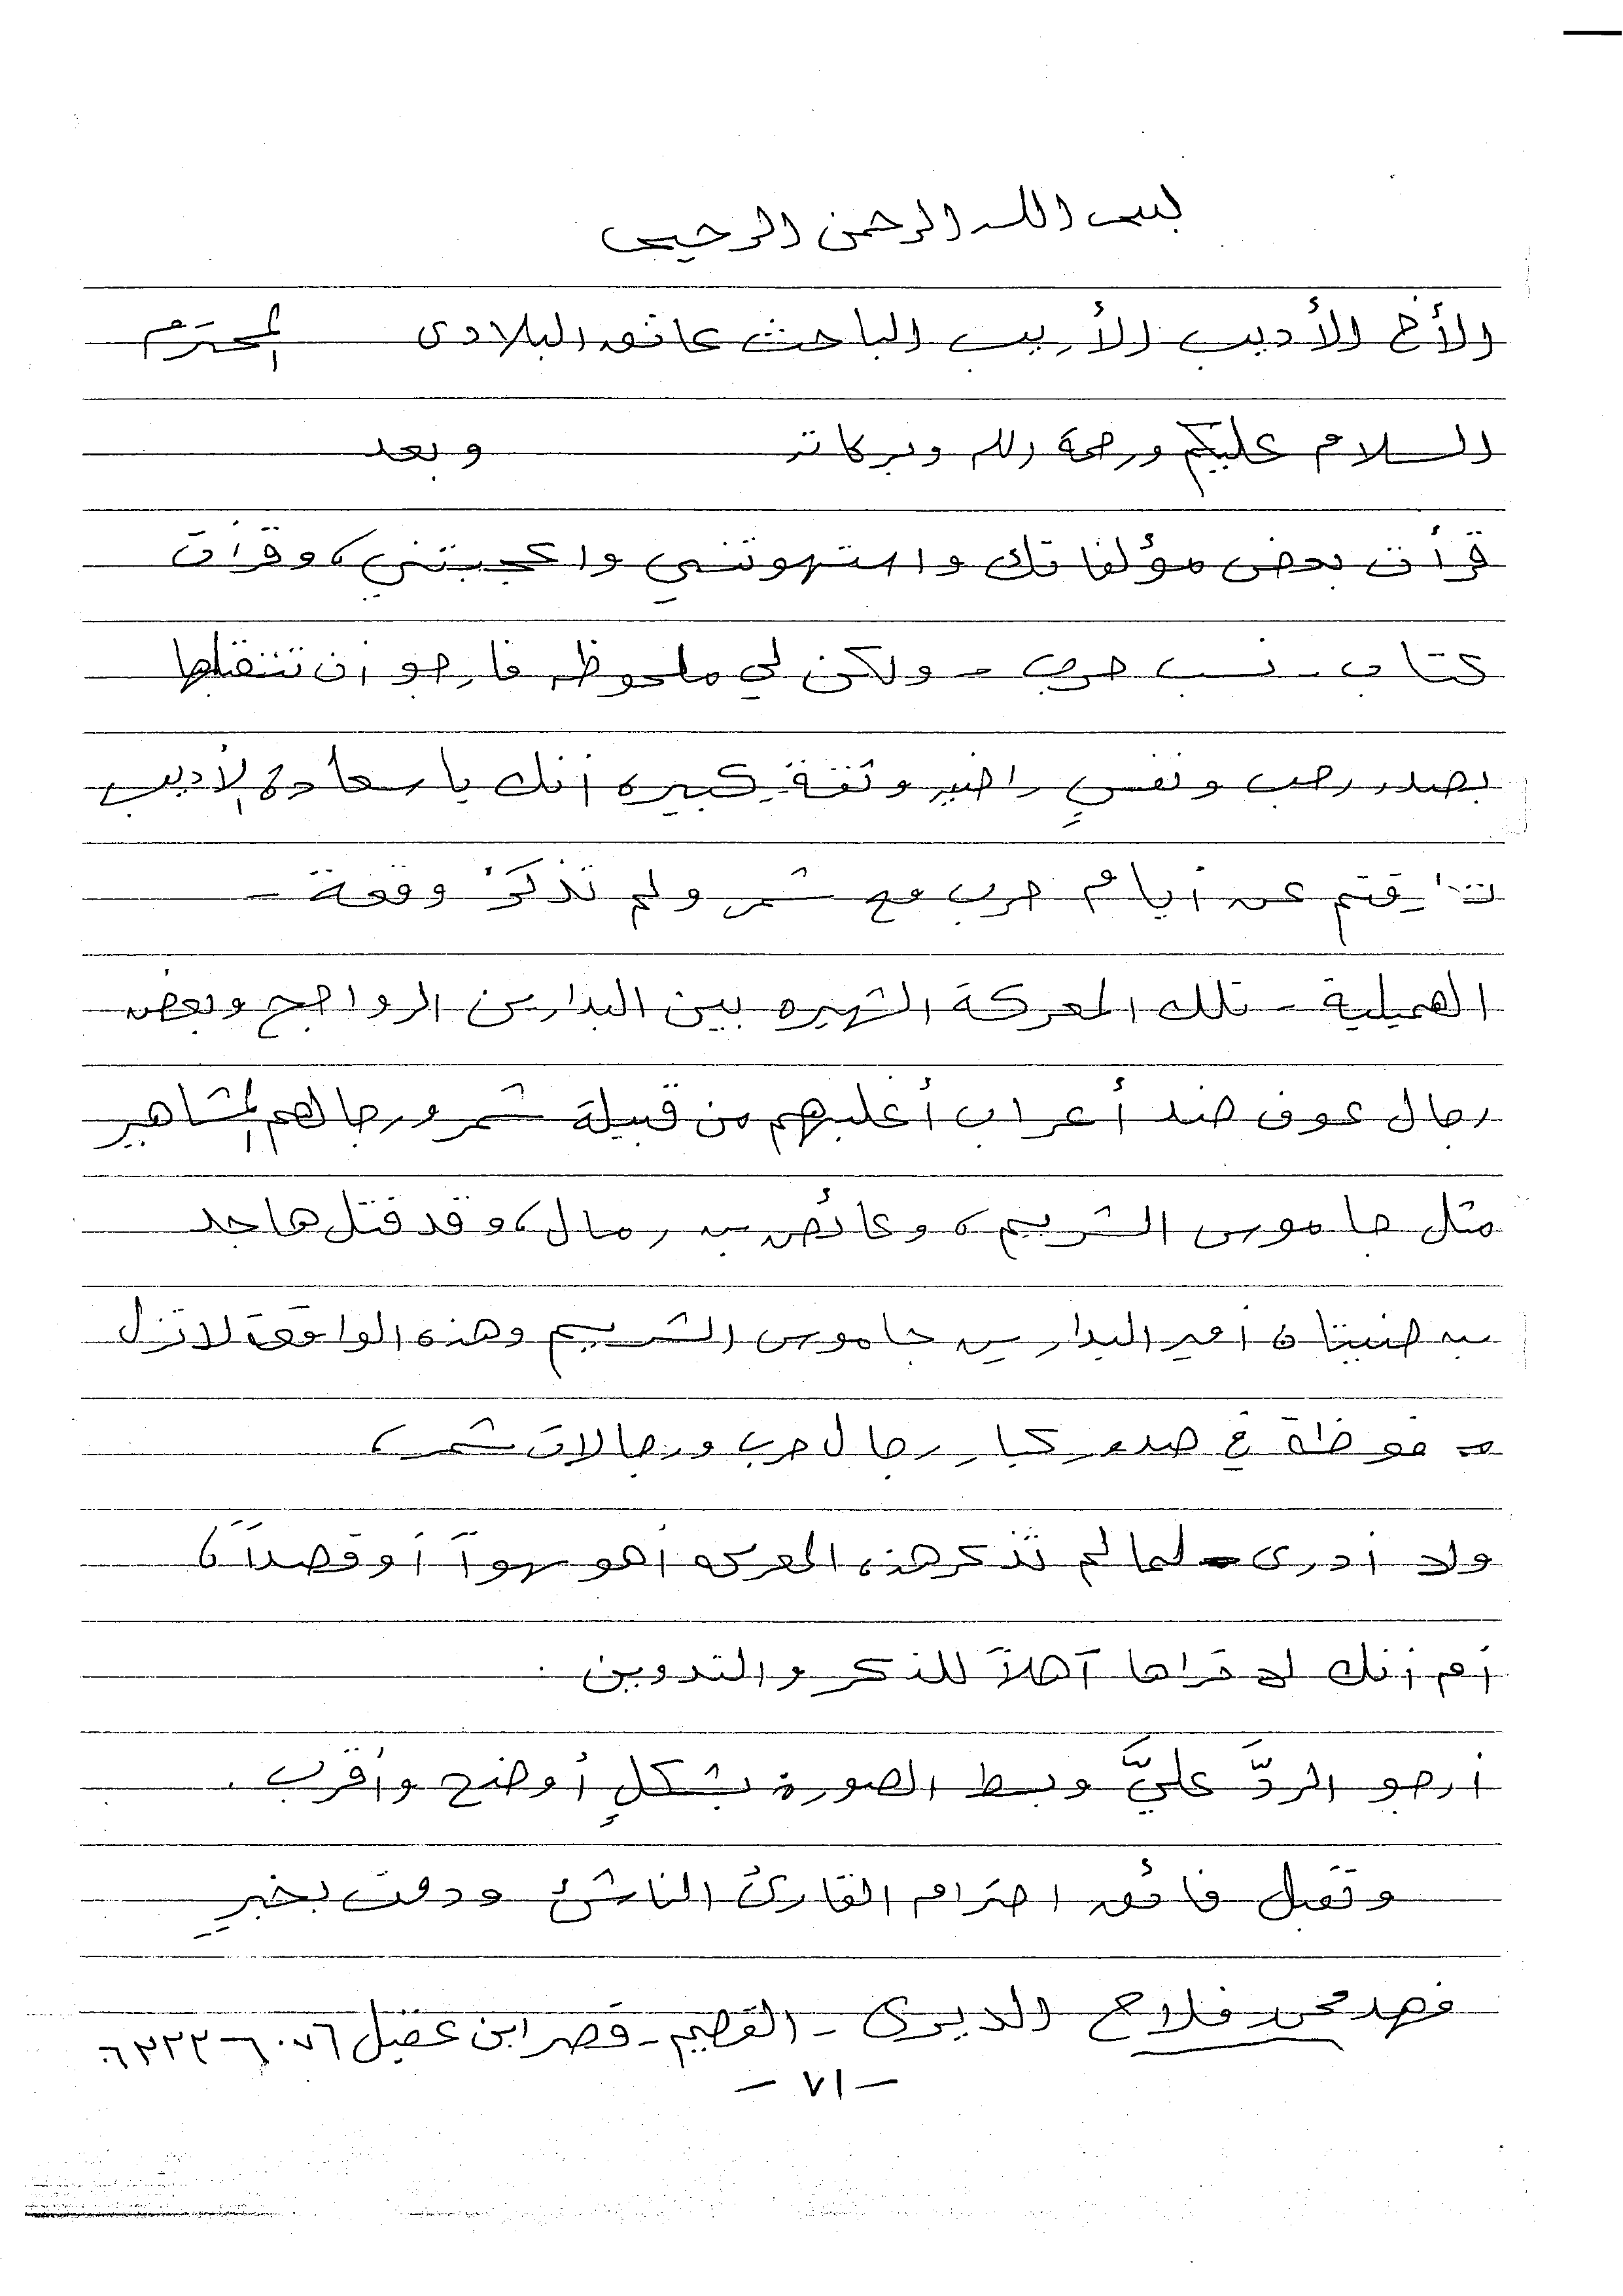 بسم الله الرحمن الرحيم
الأخ الأديب الأريب الباحث عاتق البلادي المحترم
السلام عليكم ورحمة الله وبركاته وبعد
قرأت بعض مؤلفاتك واستهوتني واعجبتني، وقرأت
كتاب - نسب حرب - ولكن لي ملحوظه فارجو أن تتقبلها
بصدر رحب ونفسٍ راضيه وثقةٍ كبيره أنك ياسعادة الأديب
عن أيام حرب مع شمر ولم تذكرْ وقعة -
الهميلية - تلك المعركة الشهيره بين البدارين الرواجح وبعض
رجال عوف ضد أعراب أغلبهم من قبيلة شمر ورجالهم المشاهير
مثل جاموس الشريم، وعائض بن رمال، وقد قتل هاجد
بن ضبيتان أمير البدارين جاموس الشريم وهذه الواقعة لاتزل
محفوظة في صدور كبار رجال حرب ورجالات شمر،
ولا أدري لما لم تذكر هذه المعركه أهو سهواً أو قصداً؟
أم أنك لا تراها آهلاً للذكر والتدوين .
أرجو الردَّ عليَّ وبسط الصورة بشكلٍ أوضح وأقرب .
وتقبل فائق احترام القارئ الناشئ ودمت بخيرٍ
فهد محمد فلاح الديري - القصيم - قصر ابن عقيل
- ٧١ -